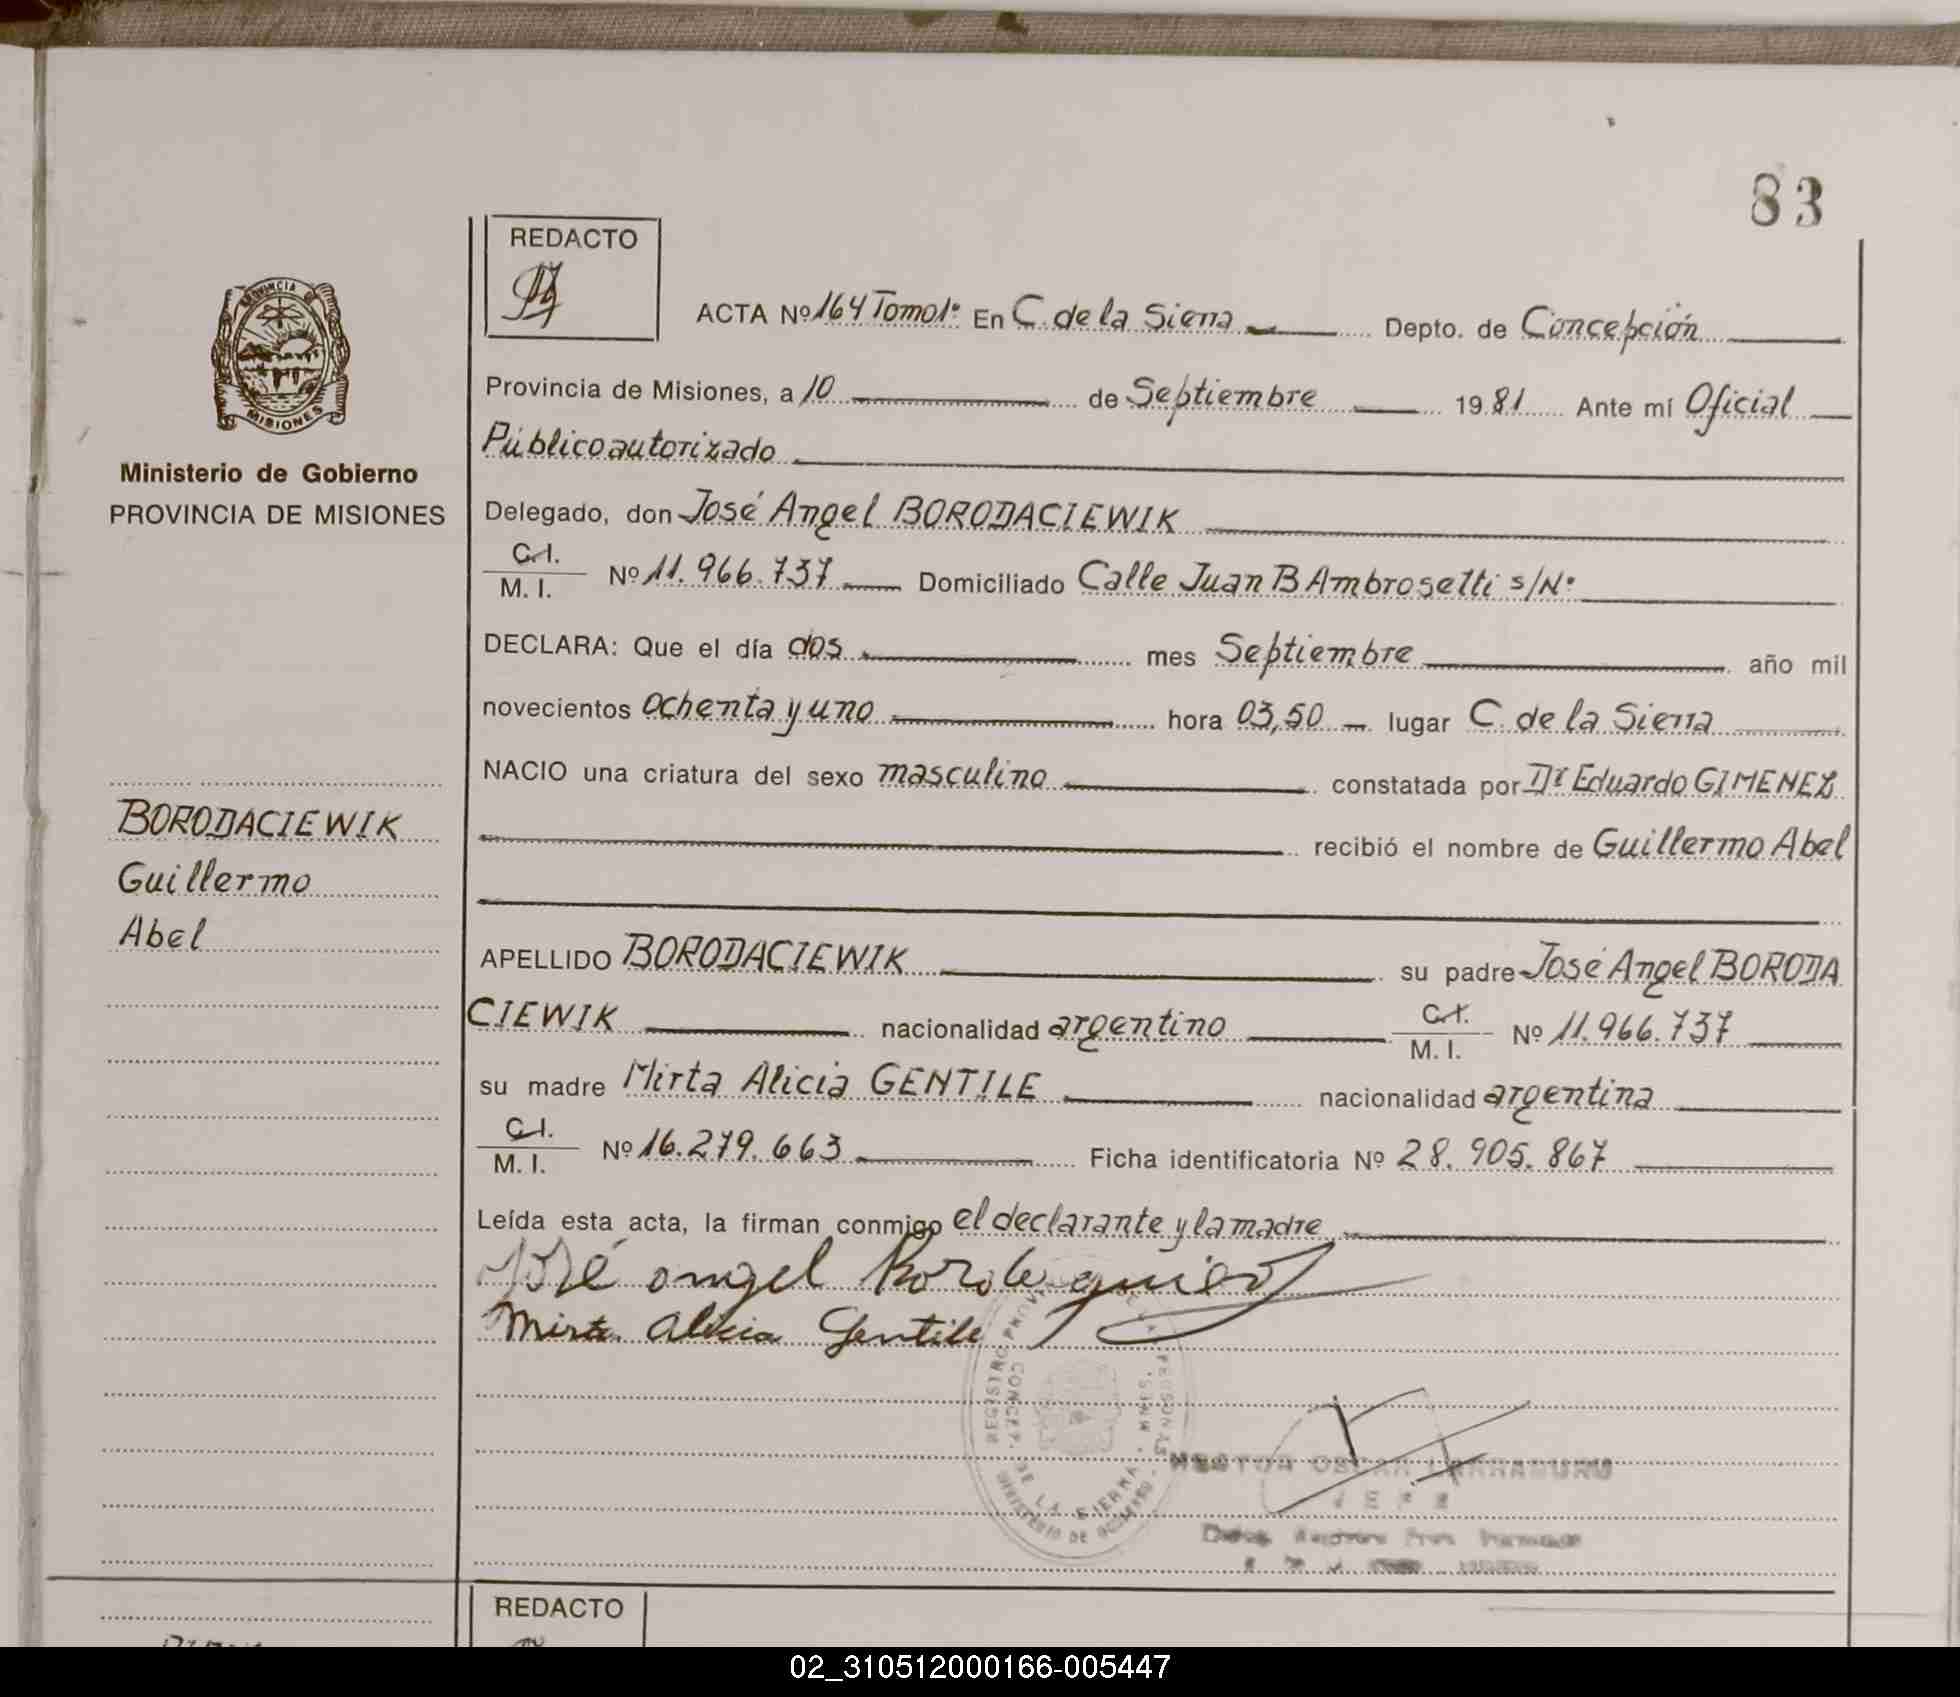 83
REDACTO
ACTA Nº 164 Tomo 1º En C. de la Sierra Depto. de Concepción
Provincia de Misiones, a 10 de Septiembre 1981 Ante mí Oficial
Público autorizado
PROVINCIA DE
MISIONES
Ministerio de Gobierno
PROVINCIA DE MISIONES
Delegado, don José Angel BORODACIEWIK
C.I.
M. I. Nº 11.966.737 Domiciliado Calle Juan B Ambrosetti s/Nº
DECLARA: Que el día dos mes Septiembre año mil
novecientos ochenta y uno hora 03,50 lugar C. de la Sierra
NACIO una criatura del sexo masculino constatada por Dr Eduardo GIMENEZ
recibió el nombre de Guillermo Abel
BORODACIEWIK
Guillermo
Abel
APELLIDO BORODACIEWIK su padre José Angel BORODA
CIEWIK nacionalidad argentino C.I. M. I. Nº 11.966.737
su madre Mirta Alicia GENTILE nacionalidad argentina
C.I.
M. I. Nº 16.279.663 Ficha identificatoria Nº 28.905.867
Leída esta acta, la firman conmigo el declarante y la madre
José angel
Mirta Alicia Gentile
REGISTRO PROVINCIAL DE LAS PERSONAS
CONCEP. DE LA SIERRA
MINISTERIO DE GOBIERNO
NESTOR OSCAR LARRABURU
JEFE
REDACTO
02_310512000166-005447